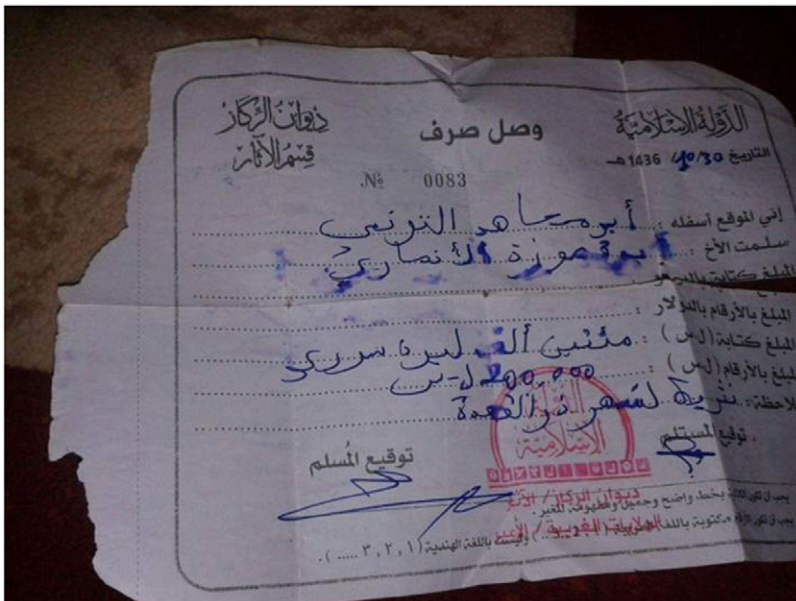 الدولة الإسلامية
ديوان الركاز
قسم الآثار
وصل صرف
التاريخ 10/30/ 1436 هـ
№ 0083
إني الموقع أسفله : أبو مجاهد التونسي
سلمت الأخ : الأنصاري
المبلغ كتابة
المبلغ بالأرقام بالدولار :
المبلغ كتابة (ل.س) : مئتين ألف ليرة سوري
المبلغ بالأرقام (ل.س) : 200,000 ل.س
ملاحظة: نثرية لشهر ذو القعدة
توقيع المستلم
توقيع المُسلم
الدولة الإسلامية
ديوان الركاز / الآثار
الولايات الغربية /
يجب أن تكون الكتابة بخط واضح وجميل ومفهومة للغير.
يجب أن تكون الأرقام مكتوبة باللغة وليست باللغة الهندية (١ , ٢ , ٣ .....).